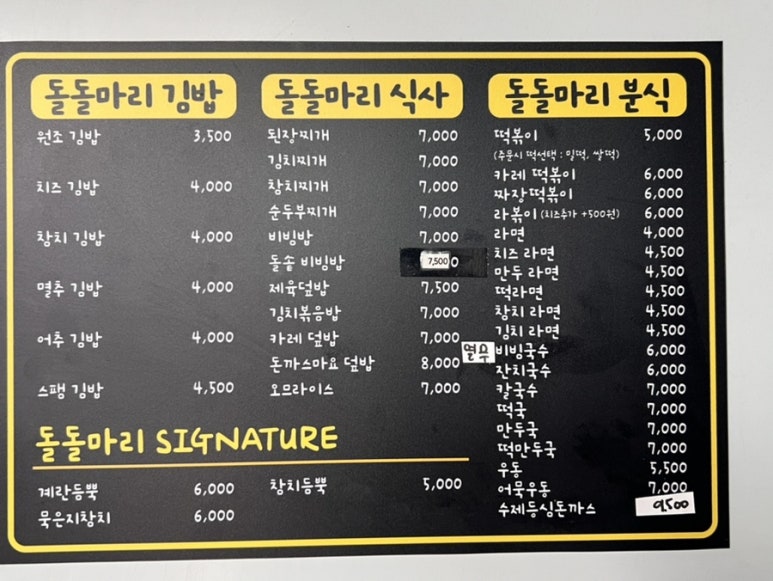 돌돌마리 김밥
원조 김밥 3,500
치즈 김밥 4,000
참치 김밥 4,000
멸추 김밥 4,000
어추 김밥 4,000
스팸 김밥 4,500
돌돌마리 식사
된장찌개 7,000
김치찌개 7,000
참치찌개 7,000
순두부찌개 7,000
비빔밥 7,000
돌솥 비빔밥 7,500
제육덮밥 7,500
김치볶음밥 7,000
카레 덮밥 7,000
돈까스마요 덮밥 8,000
오므라이스 7,000
돌돌마리 분식
떡볶이 5,000
(주문시 떡선택 : 밀떡, 쌀떡)
카레 떡볶이 6,000
짜장떡볶이 6,000
라볶이 (치즈추가 +500원) 6,000
라면 4,000
치즈 라면 4,500
만두 라면 4,500
떡라면 4,500
참치 라면 4,500
김치 라면 4,500
비빔국수 6,000
잔치국수 6,000
칼국수 7,000
떡국 7,000
만두국 7,000
떡만두국 7,000
우동 5,500
어묵우동 7,000
수제등심돈까스 9,500
돌돌마리 SIGNATURE
계란듬뿍 6,000
묵은지참치 6,000
참치듬뿍 5,000